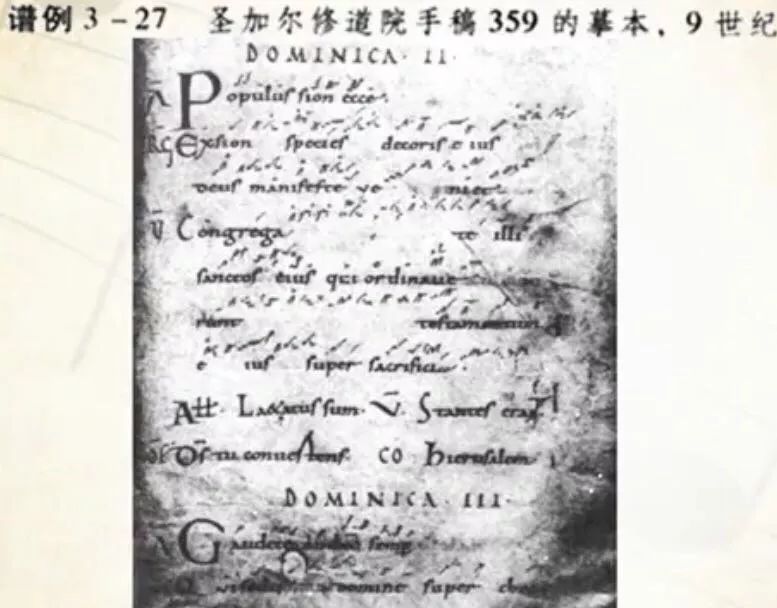 谱例 3-27 圣加尔修道院手稿 359 的摹本，9 世纪
DOMINICA · II ·
Populus sion ecce.
RG Exsion species decoris e ius
deus manifeste ve niet
V Congrega te illi
sanctos eius qui ordinave
runt testamentum
e ius super sacrificia.
All. Laetatus sum. V. Stantes erant
Of Ds tu convertens. CO Hierusalem
DOMINICA · III ·
Gaudete semp
domine super